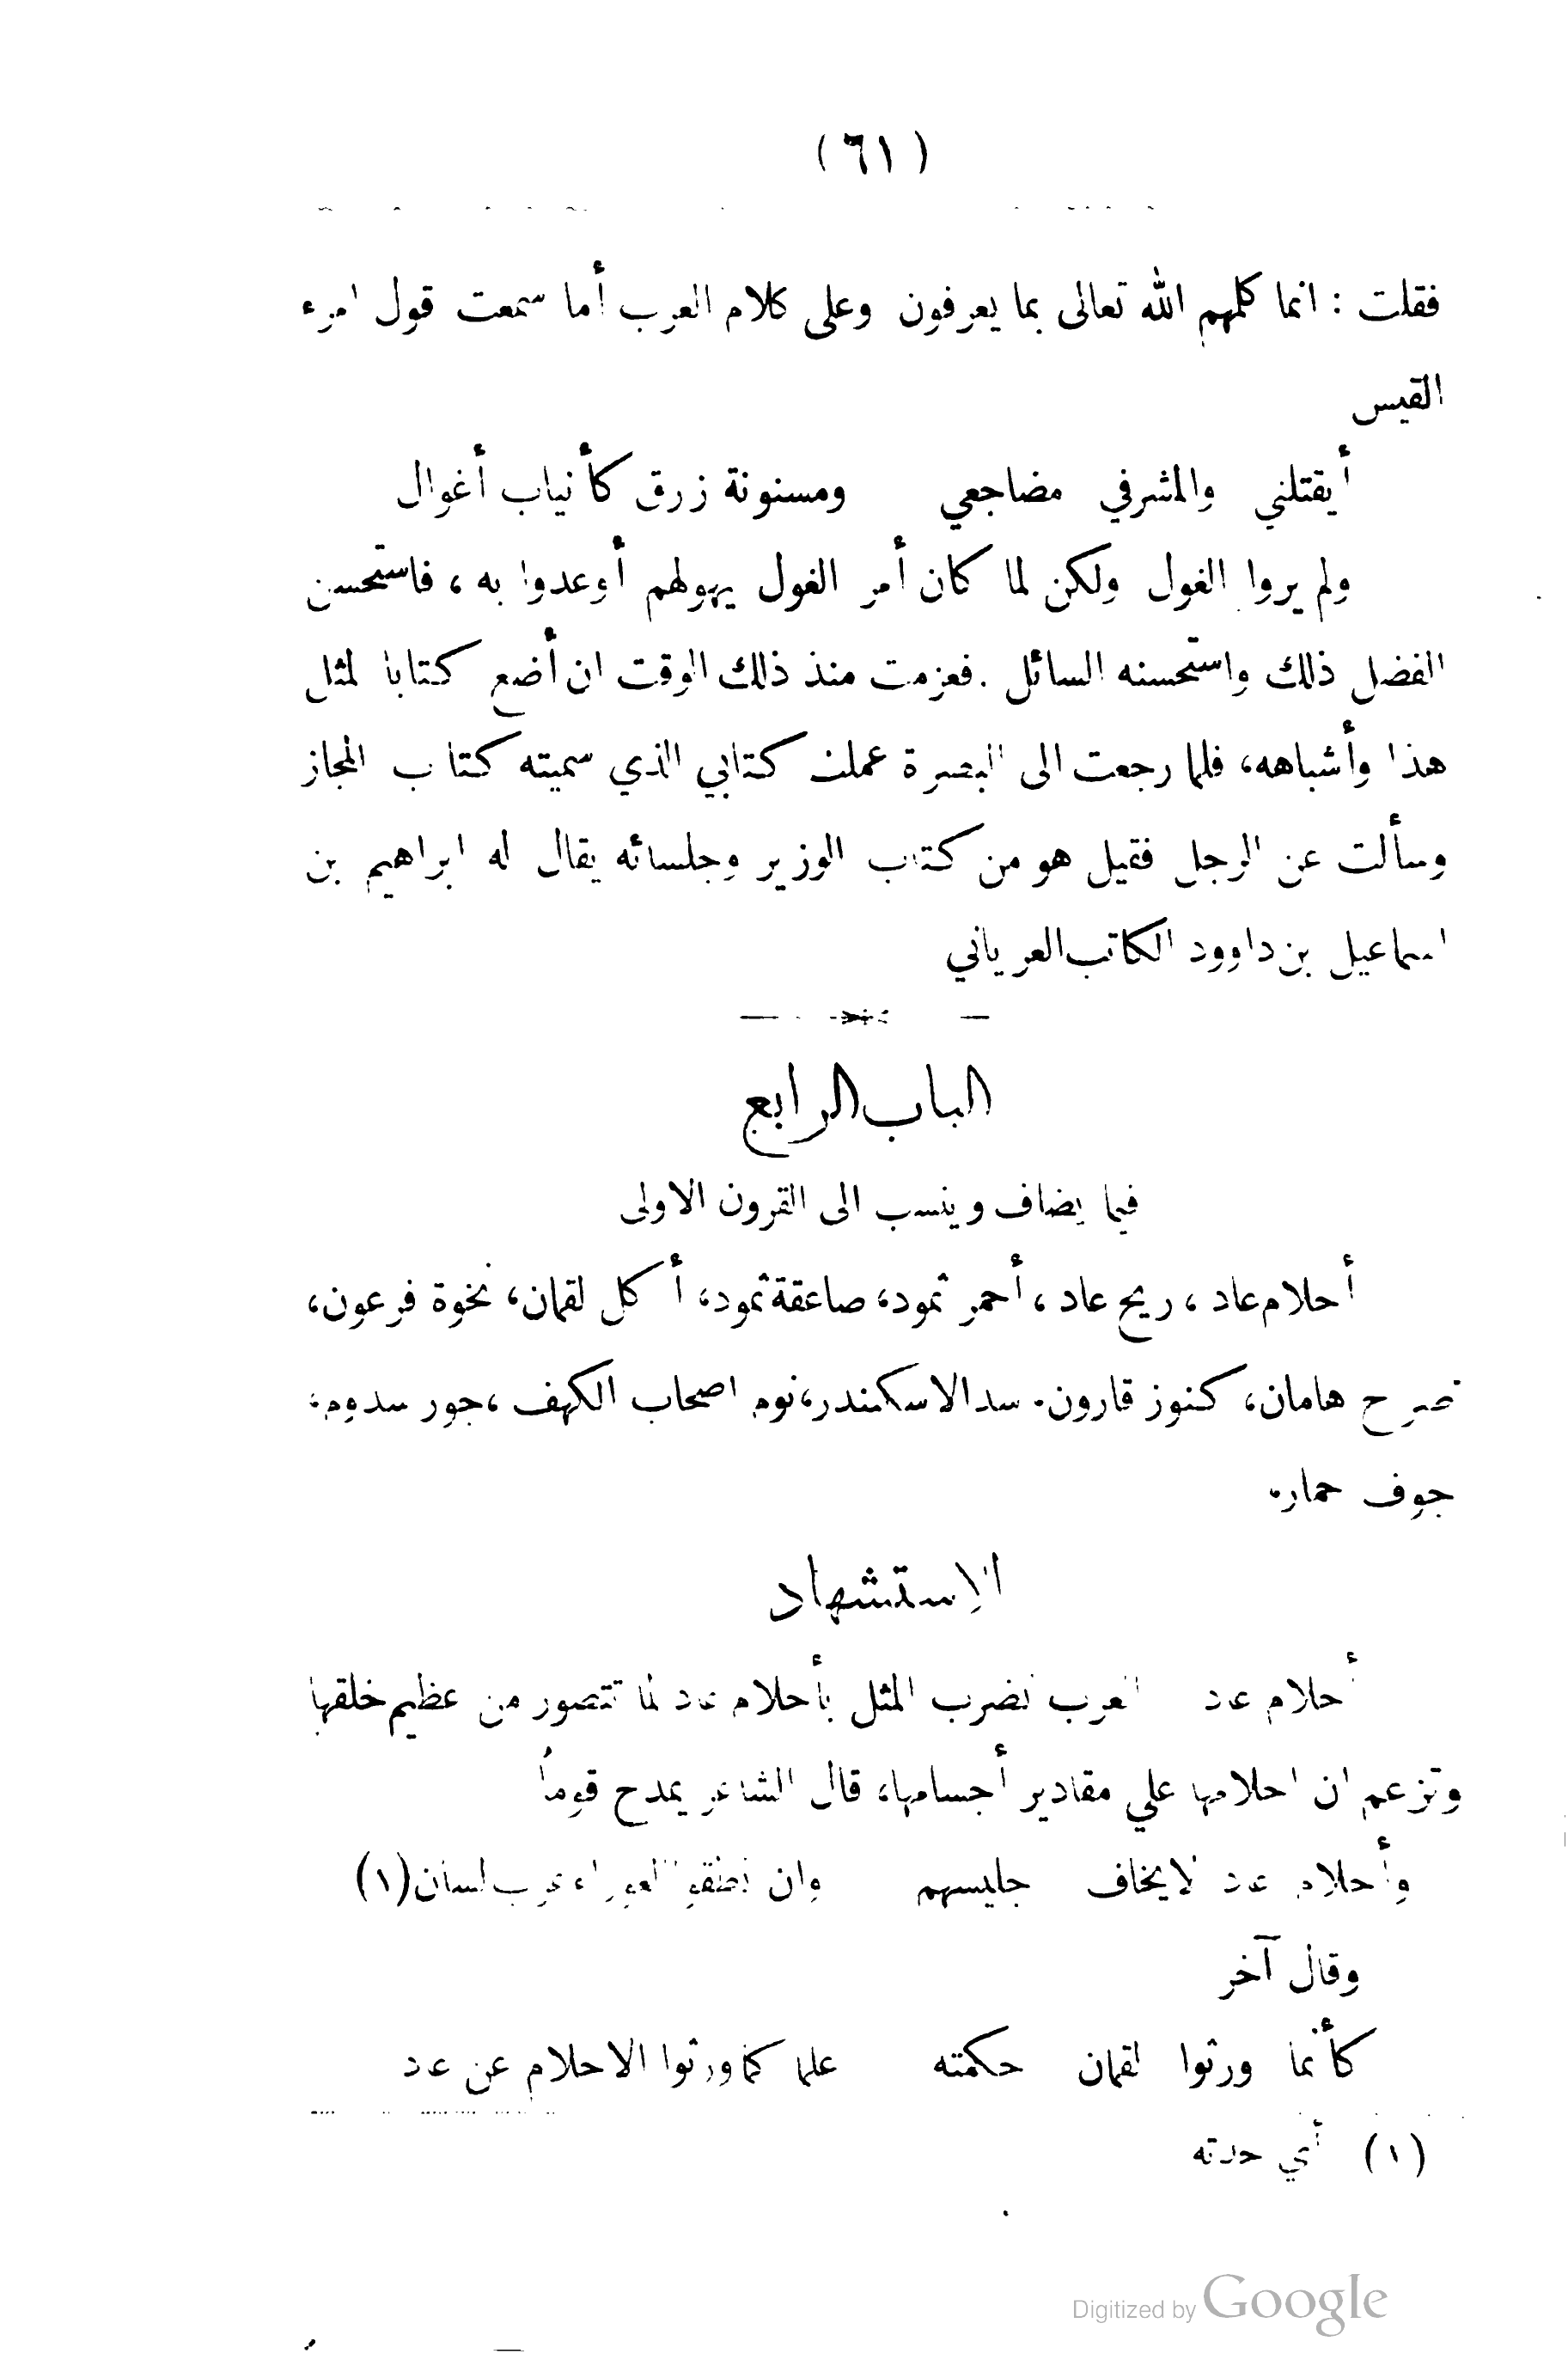 (٦١)
فقلت : انما كلمهم الله تعالى بما يعرفون وعلى كلام العرب أما سمعت قول امرء
القيس
أيقتلني والمشرفي مضاجعي ومسنونة زرق كأنياب أغوال
ولم يروا الغول ولكن لما كان أمر الغول يهولهم أوعدوا به ، فاستحسن
الفضل ذلك واستحسنه السائل . فعزمت منذ ذلك الوقت ان أضع كتابا لمثل
هذا وأشباهه، فلما رجعت الى البصرة عملت كتابي الذي سميته كتاب المجاز
وسألت عن الرجل فقيل هو من كتاب الوزير وجلسائه يقال له ابراهيم بن
اسماعيل بن داوود الكاتب العرياني
الباب الرابع
فيما يضاف وينسب الى القرون الاولى
أحلام عاد ، ريح عاد ، أحمر ثمود، صاعقة ثمود، أكل لقمان، نخوة فرعون،
صرح هامان، كنوز قارون. سد الاسكندر، نوم اصحاب الكهف ، جور سدوم،
جوف حمار.
الاستشهاد
أحلام عاد العرب تضرب المثل بأحلام عاد لما تتصور من عظيم خلقها
وتزعم ان احلامها علي مقادير أجسامها، قال الشاعر يمدح قوماً
وأحلام عاد لايخاف جليسهم وان نطقوا العوراء غرب لسان (١)
وقال آخر
كأنما ورثوا لقمان حكمته علما كما ورثوا الاحلام عن عاد
(١) أي حدته
Digitized by Google